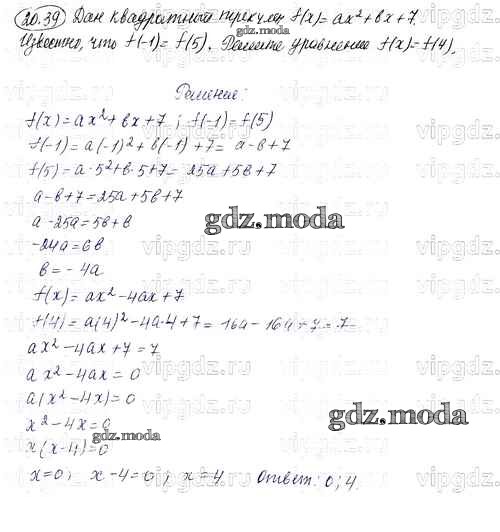 20.39) Дан квадратный трехчлен f(x)= ax²+bx+7.
Известно, что f(-1)= f(5). Решите уравнение f(x)= f(4).
Решение:
f(x)=ax²+bx+7 ; f(-1)=f(5)
f(-1)=a(-1)²+b(-1)+7= a-b+7
f(5)=a·5²+b·5+7= 25a+5b+7
a-b+7=25a+5b+7
a-25a=5b+b
gdz.moda
-24a=6b
b=-4a
f(x)= ax²-4ax+7
f(4)=a(4)²-4a·4+7=16a-16a+7=7
ax²-4ax+7=7
ax²-4ax=0
a(x²-4x)=0
x²-4x=0
gdz.moda
x(x-4)=0
x=0; x-4=0; x=4 Ответ: 0; 4.
vipgdz.ru